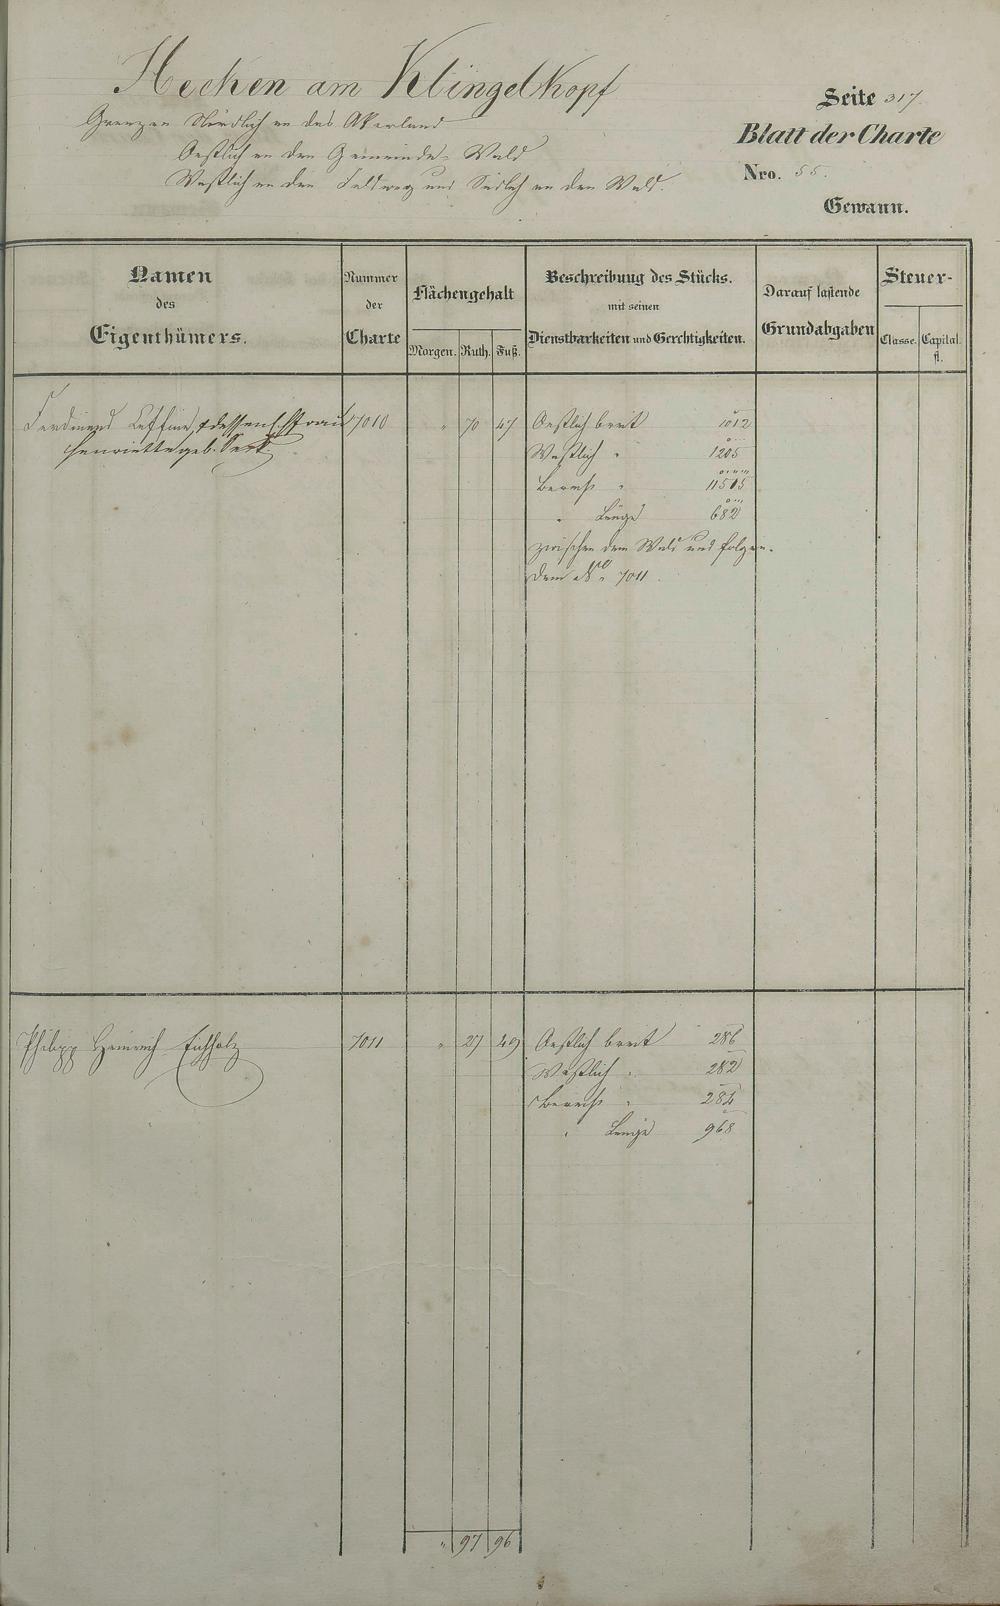 Hecken am Klingelkopf
Grenzen Nördlich an das Akerland
Oestlich an den Gemeinde-Wald
Westlich an den Feldweg und Südlich an den Wald.
Seite 317.
Blatt der Charte
Nro. 55.
Gewann.
Namen
des
Eigenthümers.
Nummer
der
Charte
Flächengehalt
Morgen. Ruth. Fuß.
Beschreibung des Stücks.
mit seinen
Dienstbarkeiten und Gerechtigkeiten.
Darauf lastende
Grundabgaben
Steuer-
Classe. Capital.
fl.
Ferdinand & dessen Ehfrau 7010 " 70 47 Oestlich breit 1012
Henriette geb. Westlich " 1205
Berecht " 11515
" Länge 682
zwischen dem Wald und folgen-
dem No. 7011.
Philipp Heinrich Eichholz 7011 " 27 49 Oestlich breit 286
Westlich " 282
Berecht " 284
" Länge 968
" 97 96